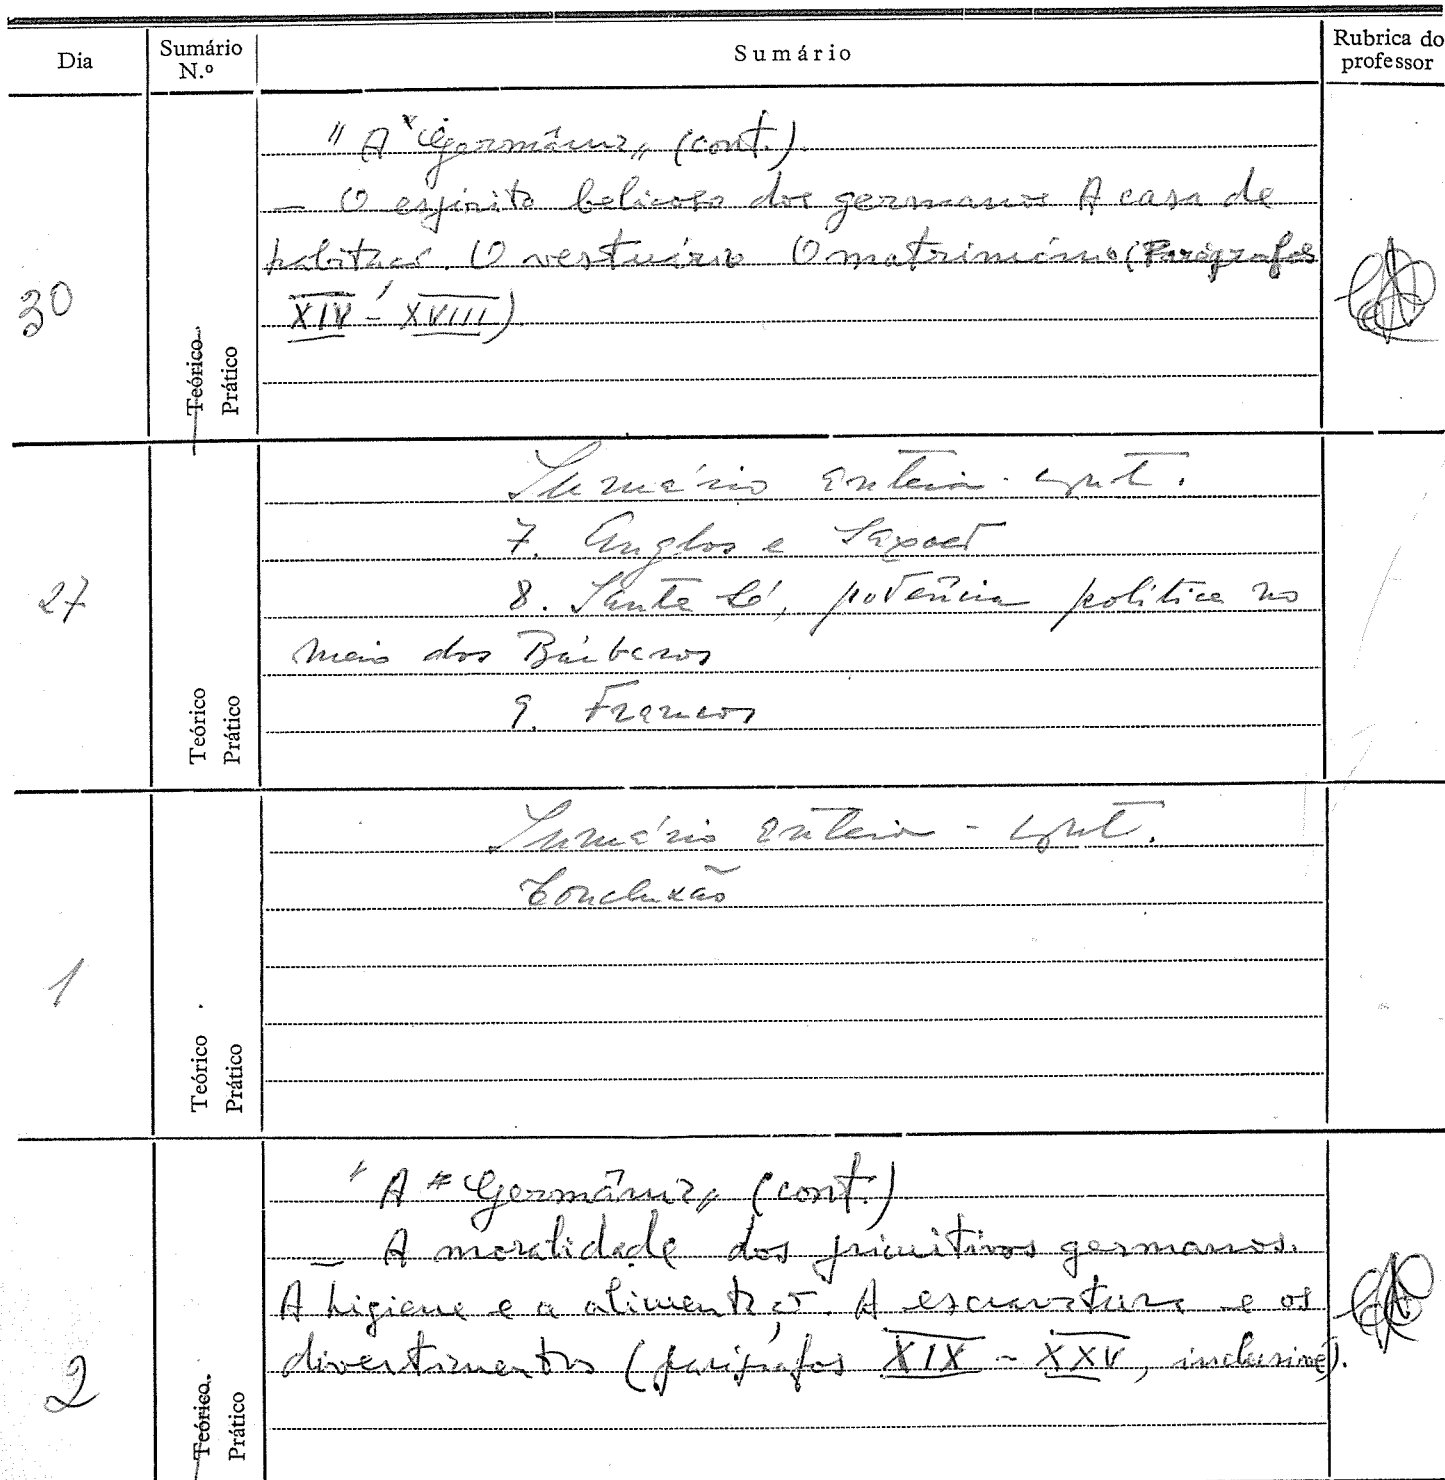 Dia
Sumário N.º
Sumário
Rubrica do professor
30
Teórico
Prático
"A "Germânia„ (cont.).
— O espírito belicoso dos germanos A casa de
habitação. O vestuário O matrimónio (Parágrafos
XIV - XVIII)
27
Teórico
Prático
Sumário anterior - cont.
7. Anglos e Saxões
8. Santa Sé, potência política no
meio dos Bárbaros
9. Francos
1
Teórico
Prático
Sumário anterior - cont.
Conclusão
2
Teórico
Prático
A "Germânia„ (cont.)
— A moralidade dos primitivos germanos.
A higiene e a alimentação. A escravatura e os
divertimentos (parágrafos XIX - XXV, inclusive).